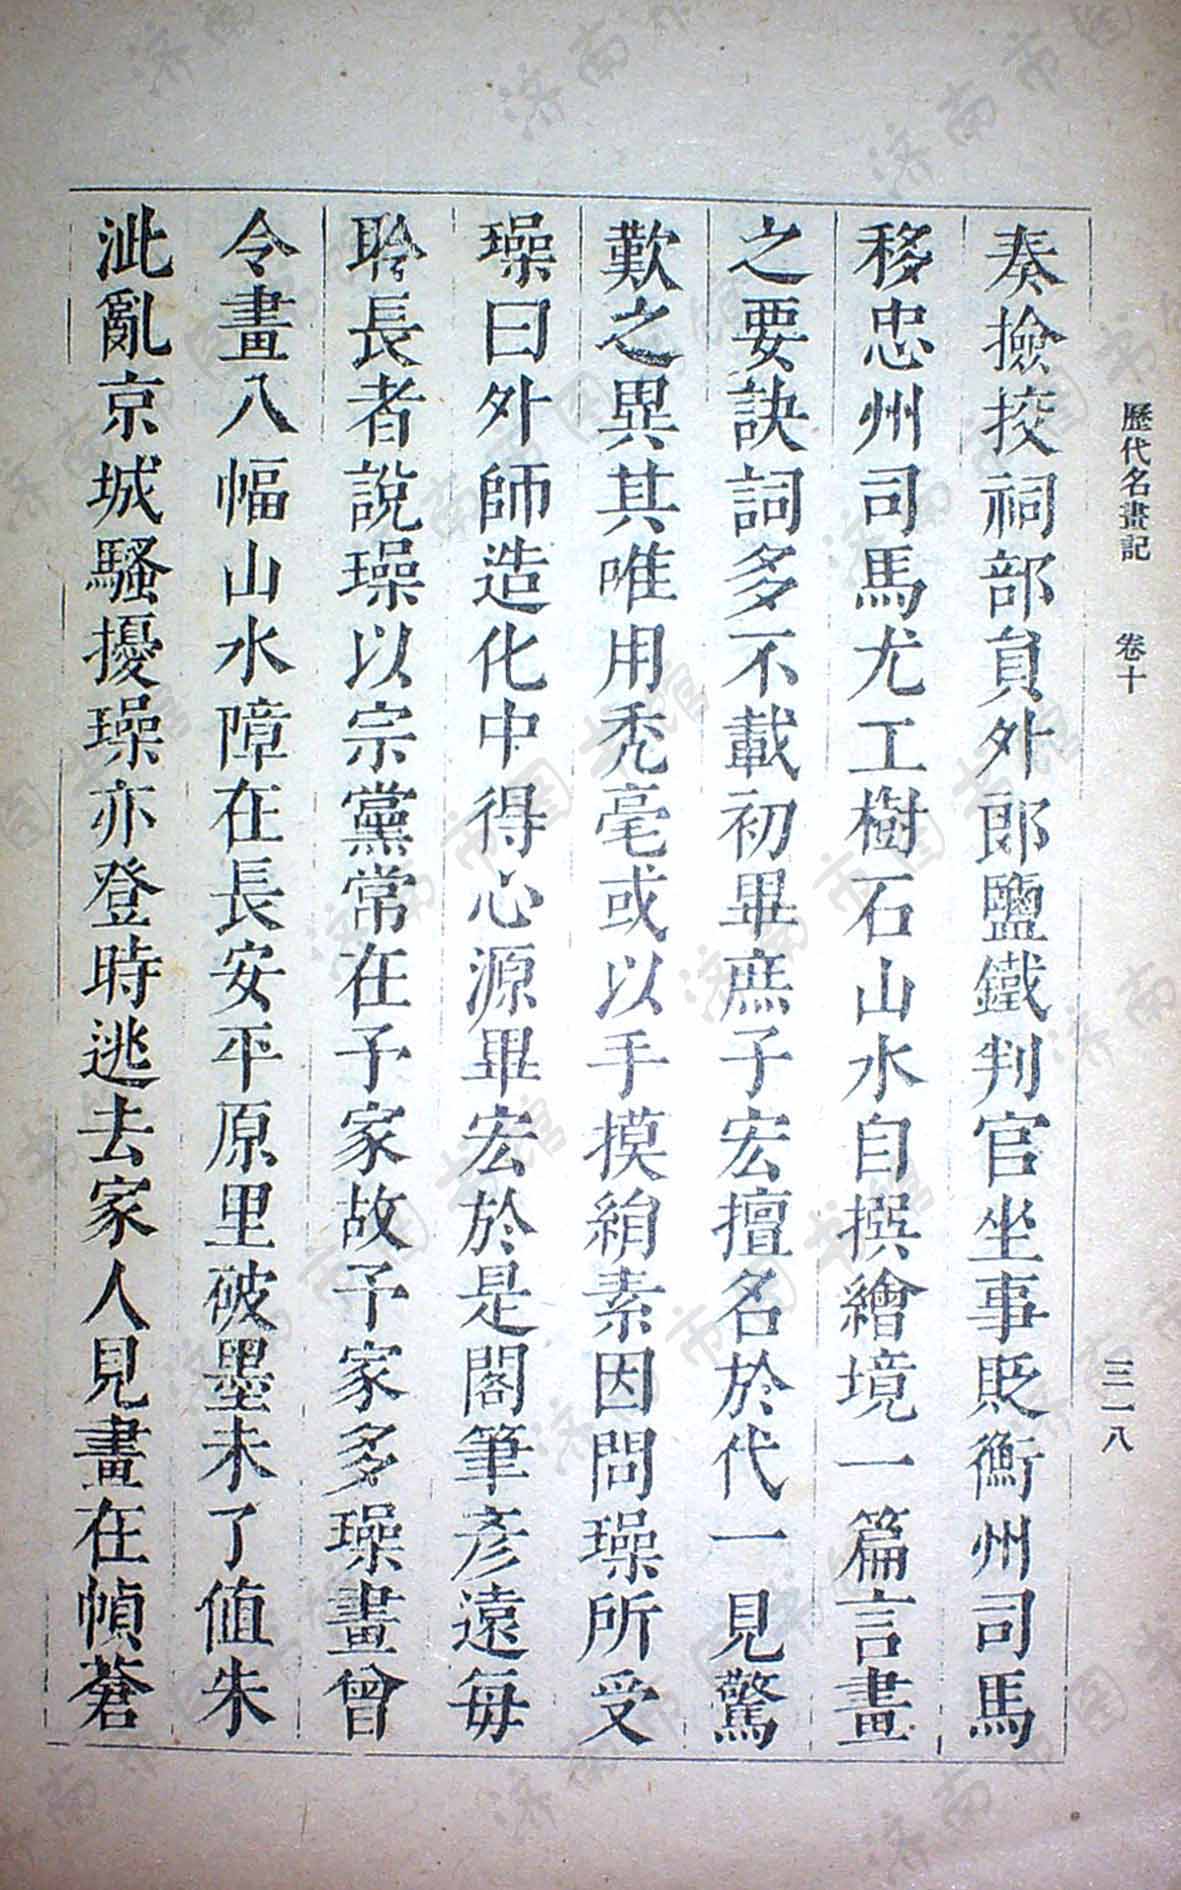 歷代名畫記　卷十　三一八
奏撿挍祠部貟外郎鹽鐵判官坐事貶衡州司馬
移忠州司馬尤工樹石山水自撰繪境一篇言畫
之要訣詞多不載初畢庶子宏擅名於代一見驚
歎之異其唯用禿毫或以手摸絹素因問璪所受
璪曰外師造化中得心源畢宏於是閣筆彥遠每
聆長者說璪以宗黨常在予家故予家多璪畫曾
令畫八幅山水障在長安平原里破墨未了值朱
泚亂京城騷擾璪亦登時逃去家人見畫在幀蒼